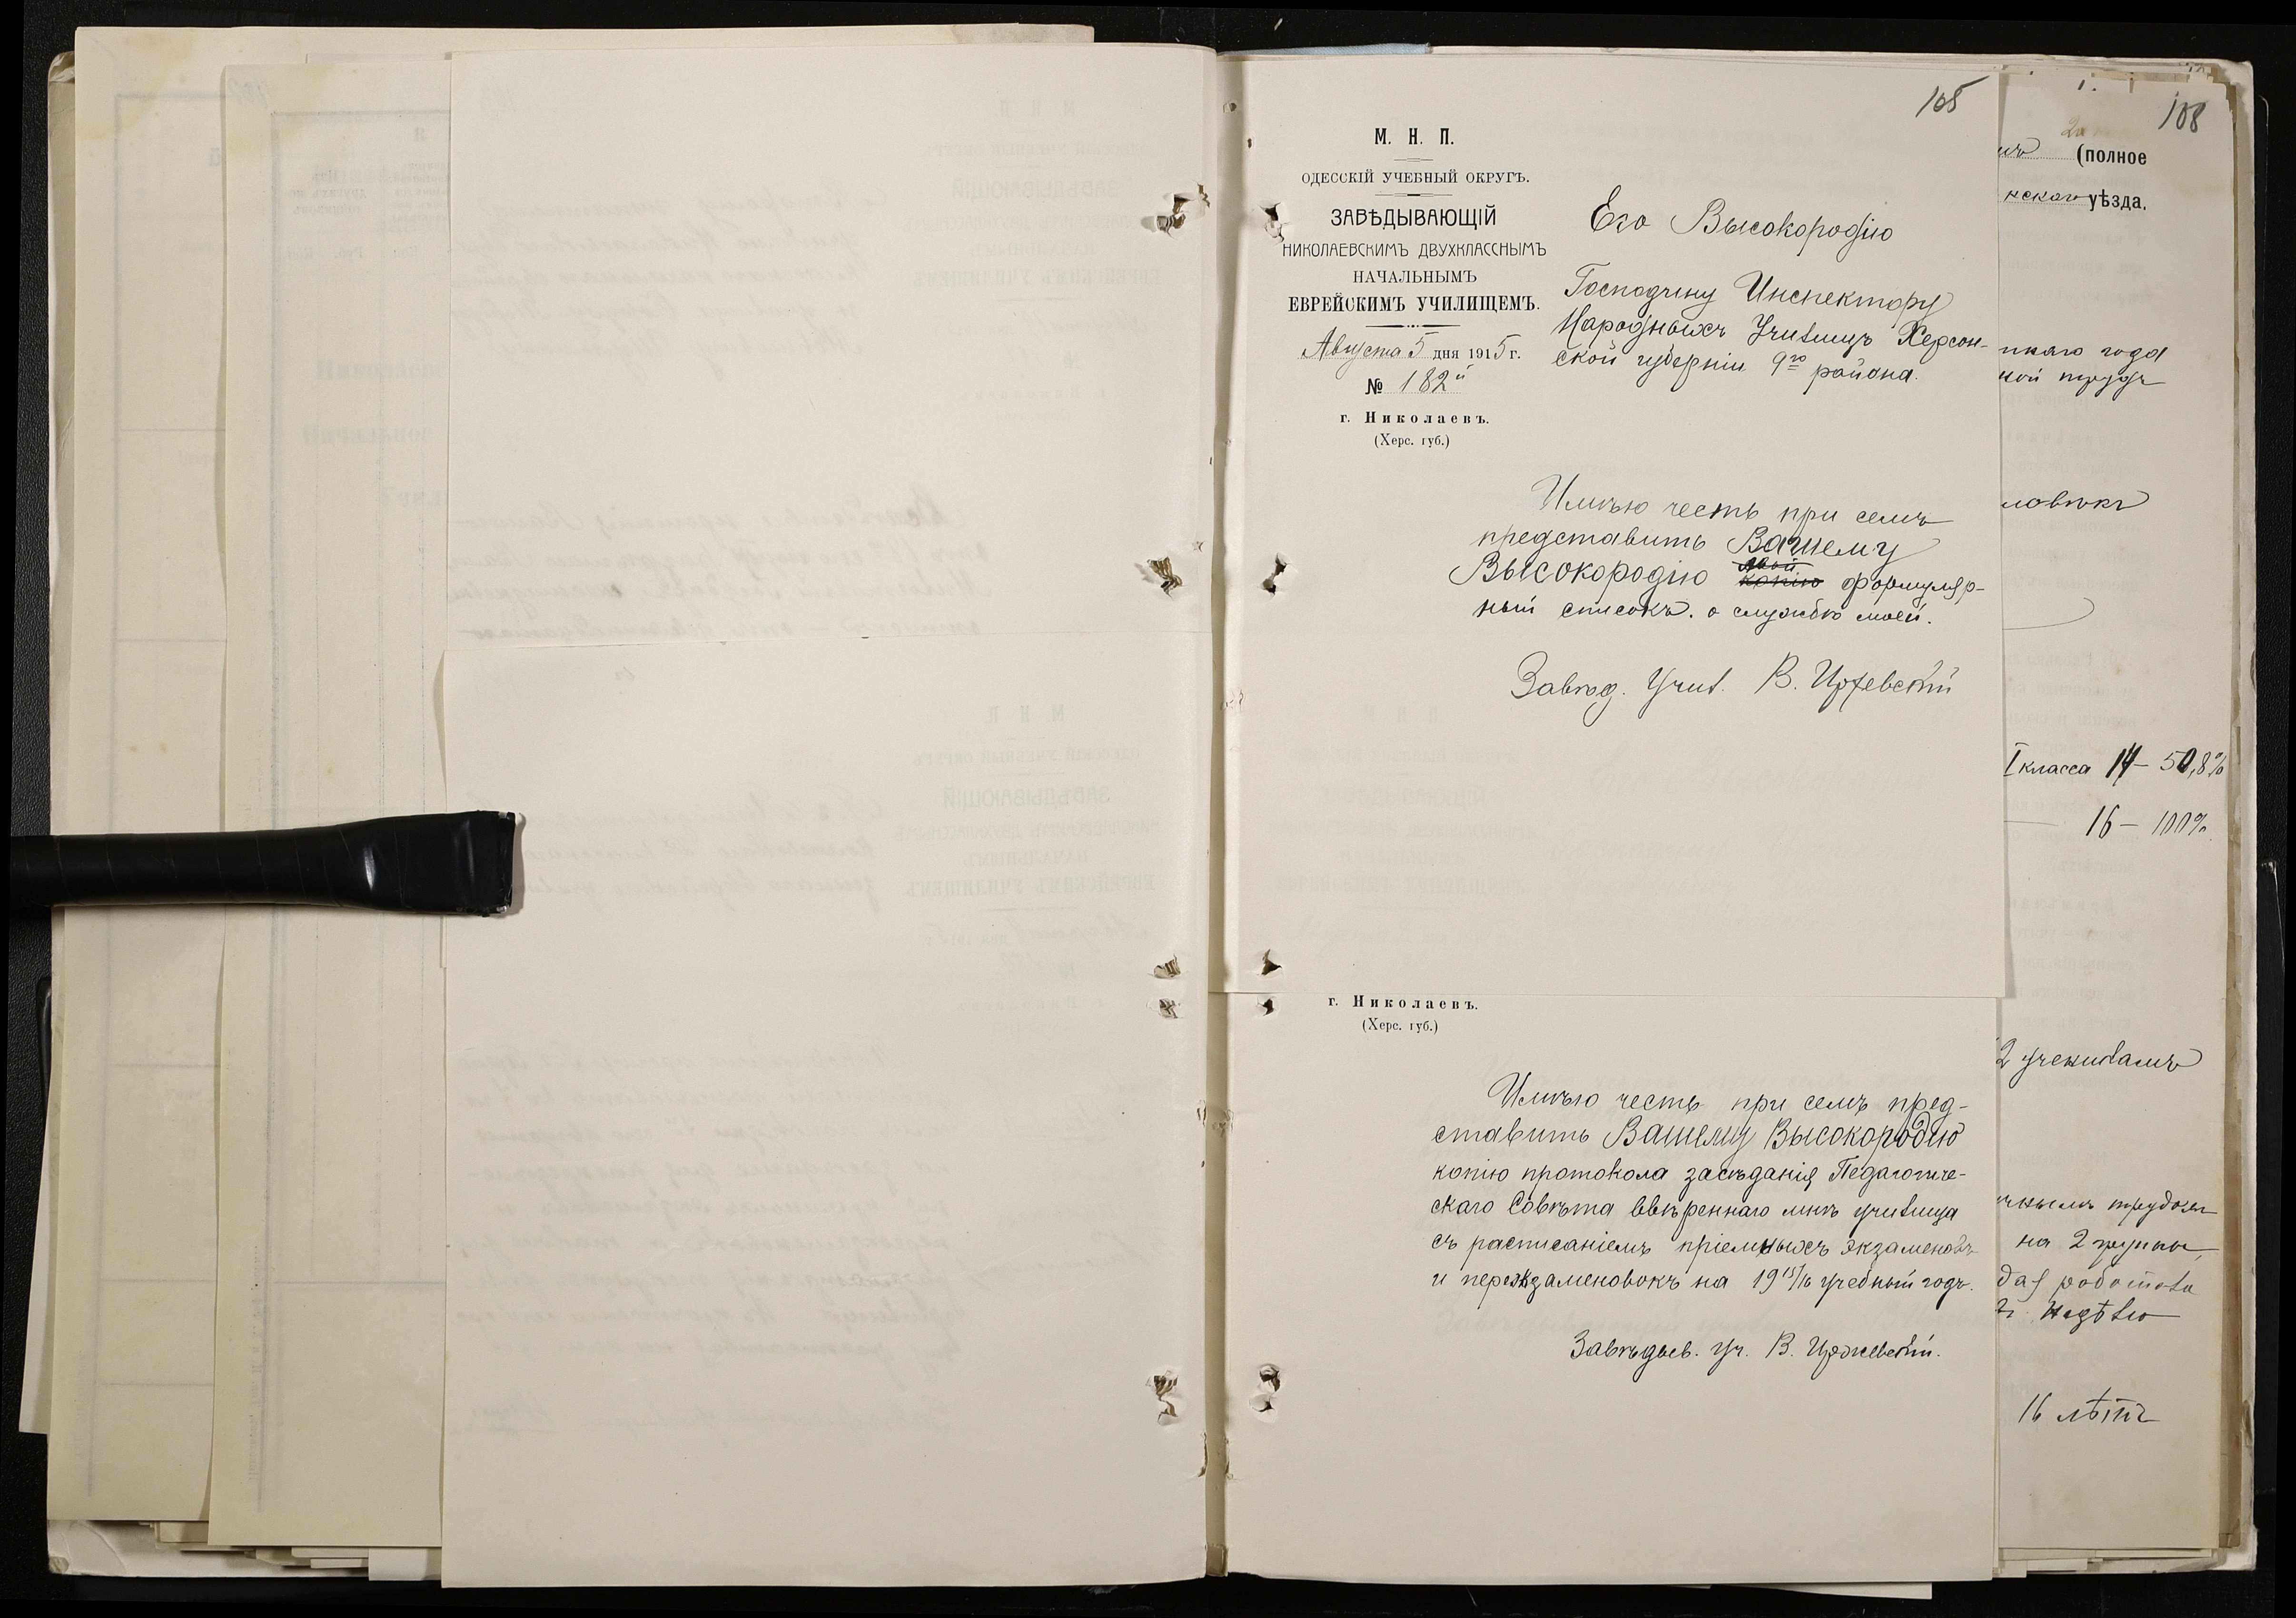 105
М. Н. П.
ОДЕССКІЙ УЧЕБНЫЙ ОКРУГЪ.
ЗАВѢДЫВАЮЩІЙ
НИКОЛАЕВСКИМЪ ДВУХКЛАССНЫМЪ
НАЧАЛЬНЫМЪ
ЕВРЕЙСКИМЪ УЧИЛИЩЕМЪ.
Августа 5 дня 1915 г.
№ 182й
г. Николаевъ.
(Херс. губ.)
Его Высокородію
Господину Инспектору
Народныхъ Училищъ Херсон-
ской губерніи 9го района.
Имѣю честь при семъ
представить Вашему
Высокородію мой копію формуляр-
ный списокъ. о службѣ моей.
Завѣд. Учил.
г. Николаевъ.
(Херс. губ.)
Имѣю честь при семъ пред-
ставить Вашему Высокородію
копію протокола засѣданія Педагогиче-
скаго Совѣта ввѣреннаго мнѣ училища
съ расписаніемъ пріемныхъ экзаменовъ
и переэкзаменовокъ на 1915/16 учебный годъ.
Завѣдыв. уч. В.
108
(полное
нскаго уѣзда.
года
ной трудъ
ловѣкъ
I класса 14 – 50,8%
16 – 100%
2 ученикамъ
на 2 группы,
недѣлю
16 лѣтъ